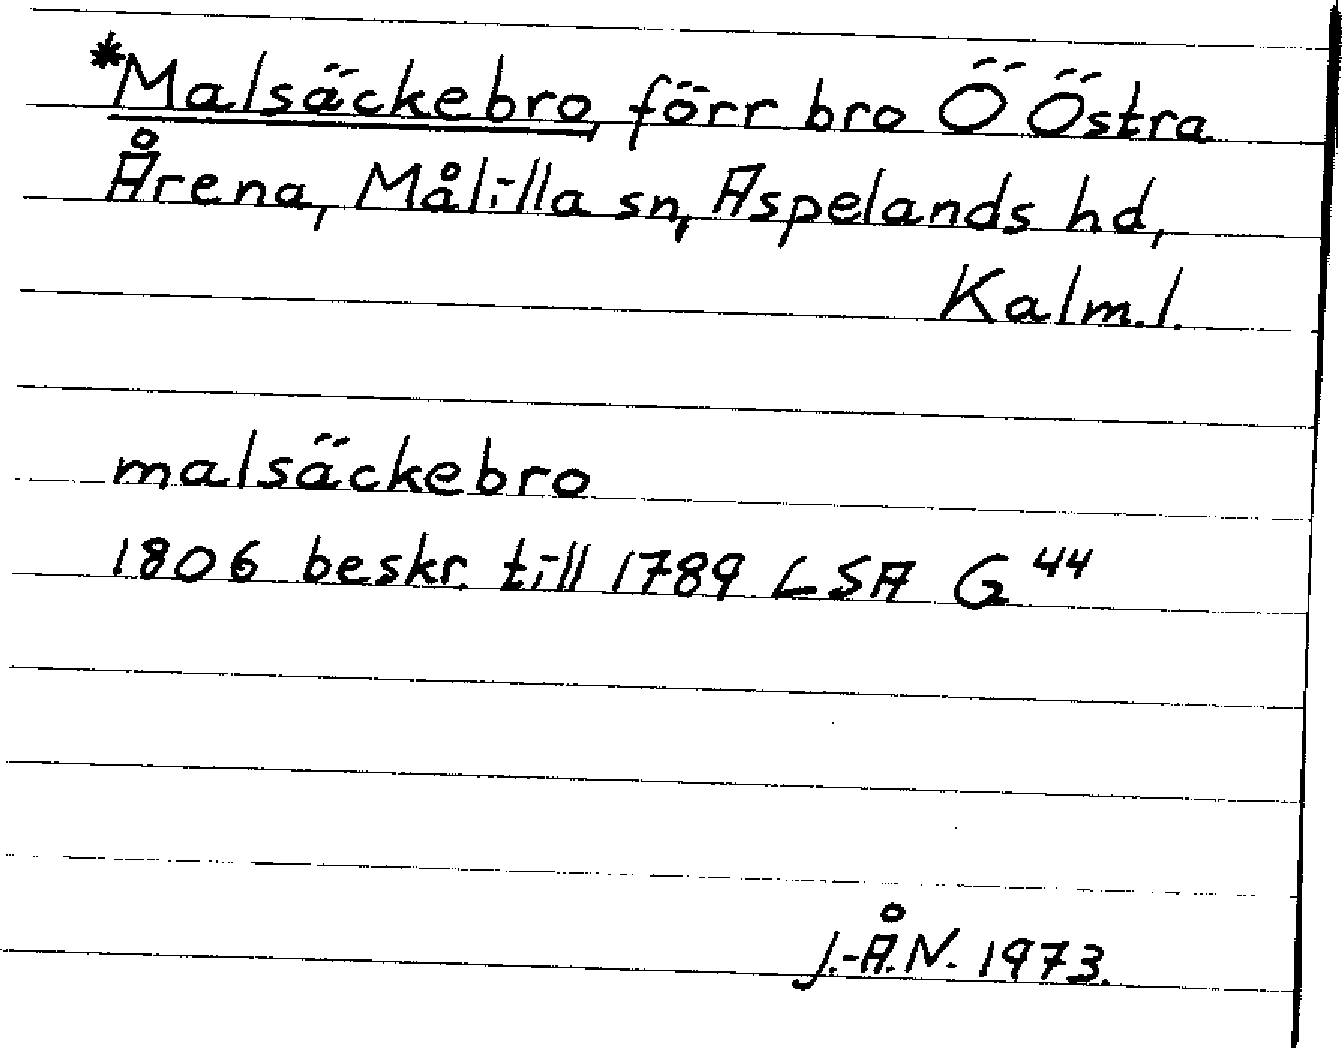 *Malsäckebro, förr bro Ö Östra
Årena, Målilla sn, Aspelands hd,
Kalm.l.
malsäckebro
1806 beskr. till 1789 LSA G 44
J.-Å.N. 1973.